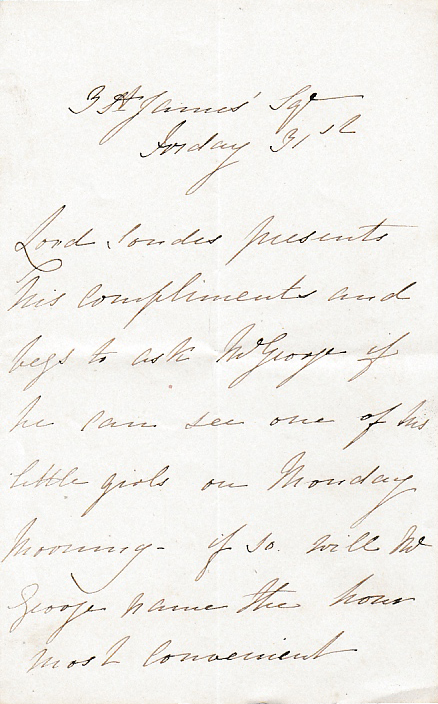 3 St James' Sqr
Friday 31st
Lord Sondes presents
his compliments and
begs to ask Mr George if
he can see one of his
little girls on Monday
Morning - if so. will Mr
George name the hour
most convenient